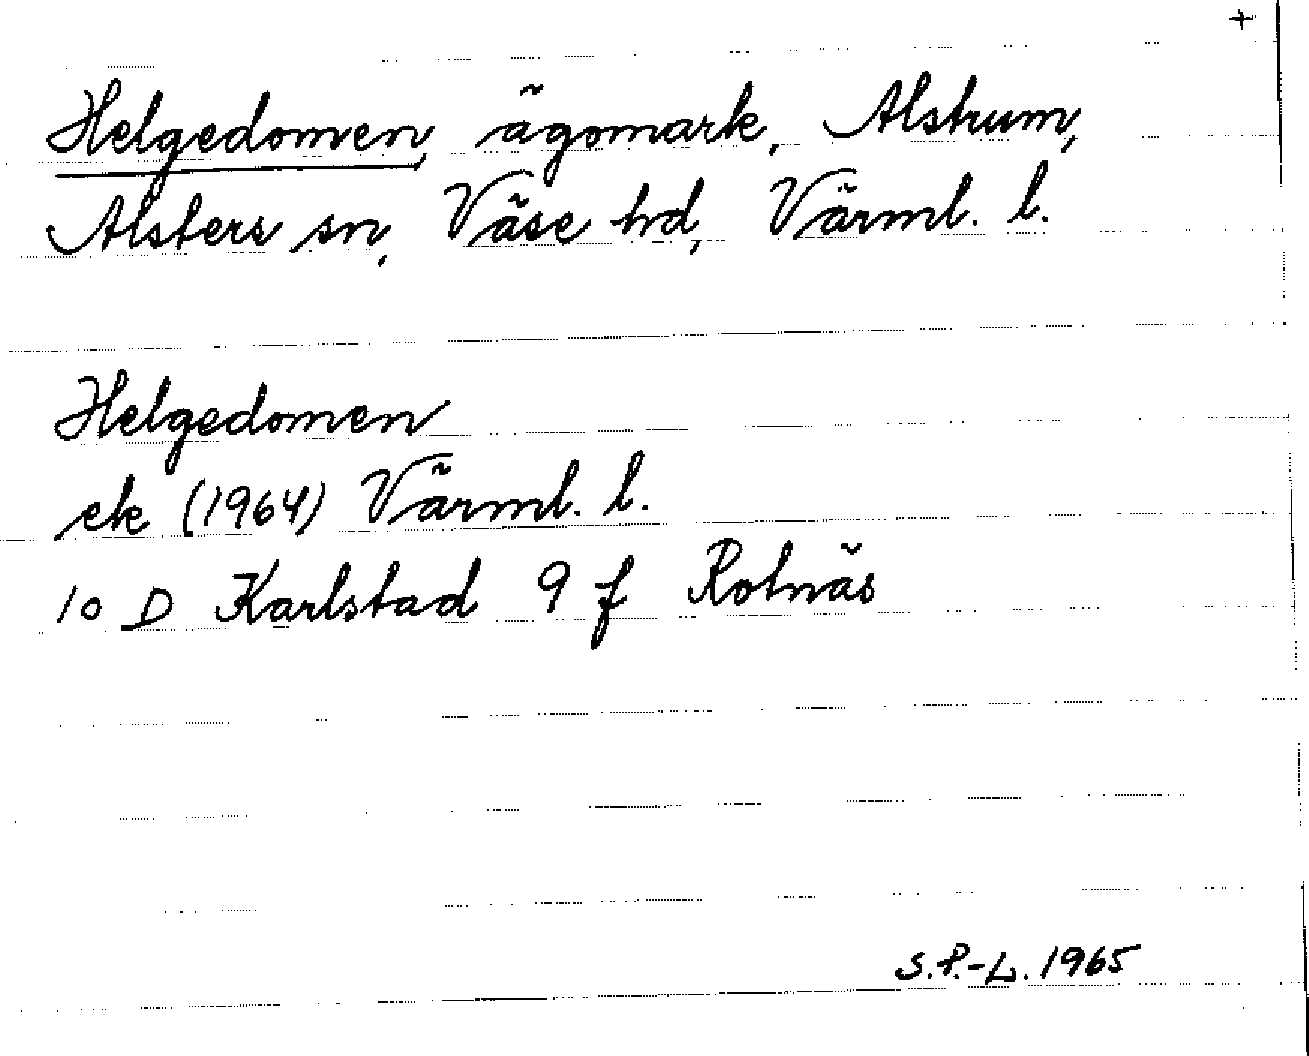 +
Helgedomen, ägomark, Alstrum,
Alsters sn, Väse hd, Värml. l.
Helgedomen
ek (1964) Värml. l.
10 D Karlstad 9 f Rotnäs
S.P.-L. 1965